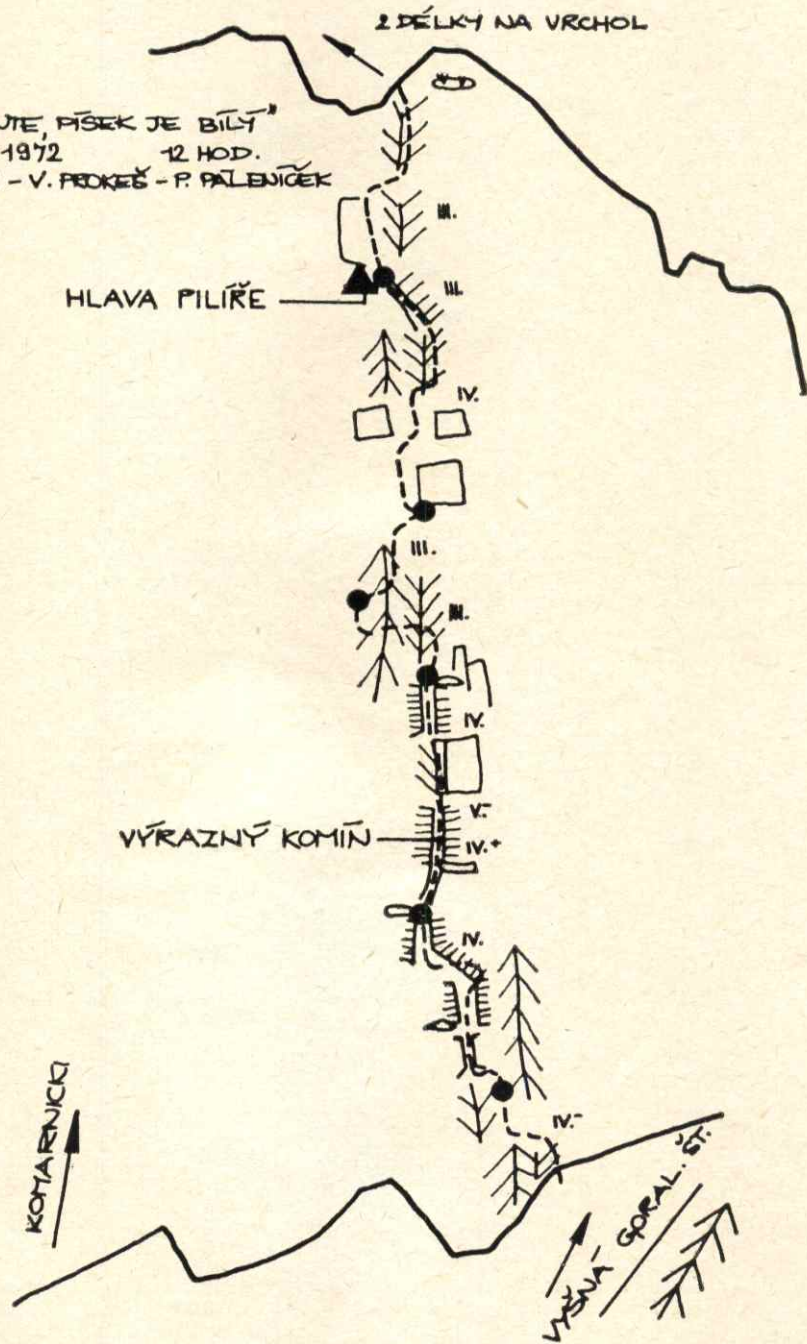 2 DÉLKY NA VRCHOL
PÍSEK JE BÍLÝ"
1972 12 HOD.
- V. PROKEŠ - P. PALENÍČEK
III.
HLAVA PILÍŘE
III.
IV.
III.
III.
IV.
V.-
VÝRAZNÝ KOMÍN
IV.+
IV.
IV.-
KOMARNICKI
VYŠNÁ GORAL. ŠT.